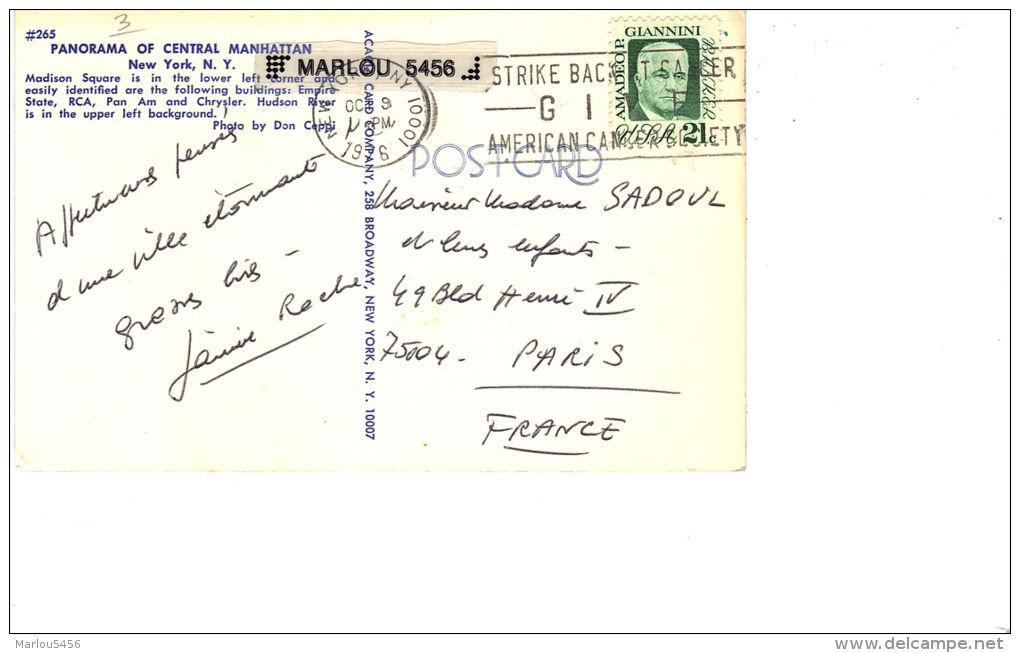 #265
3
PANORAMA OF CENTRAL MANHATTAN
New York, N. Y.
Madison Square is in the lower left corner and
easily identified are the following buildings: Empire
State, RCA, Pan Am and Chrysler. Hudson River
is in the upper left background.
Photo by Don Ceppi
MARLOU 5456
NEW YORK, NY 10001
OCT 9
PM
1976
STRIKE BACK AT CANCER
G I
AMERICAN CANCER SOCIETY
AMADEO P. GIANNINI
BANKER
USA 21c
POST CARD
ACACIA CARD COMPANY, 258 BROADWAY, NEW YORK, N. Y. 10007
Affectueuses pensées
d'une ville étonnante
grosses bises -
Janine Roche
Monsieur Madame SADOUL
et leurs enfants -
49 Bld Henri IV
75004 - PARIS
FRANCE
Marlou5456
www.delcampe.net